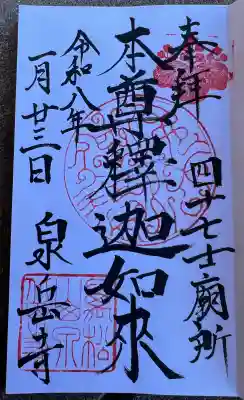 奉拝
四十七士廟所
本尊釋迦如来
令和八年
一月廿三日
泉岳寺